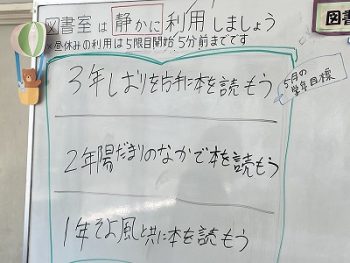 図書室は静かに利用しましょう
※昼休みの利用は5限目開始5分前までです
3年しおりを片手に本を読もう
5月の
学年目標
2年陽だまりのなかで本を読もう
1年そよ風と共に本を読もう
図書